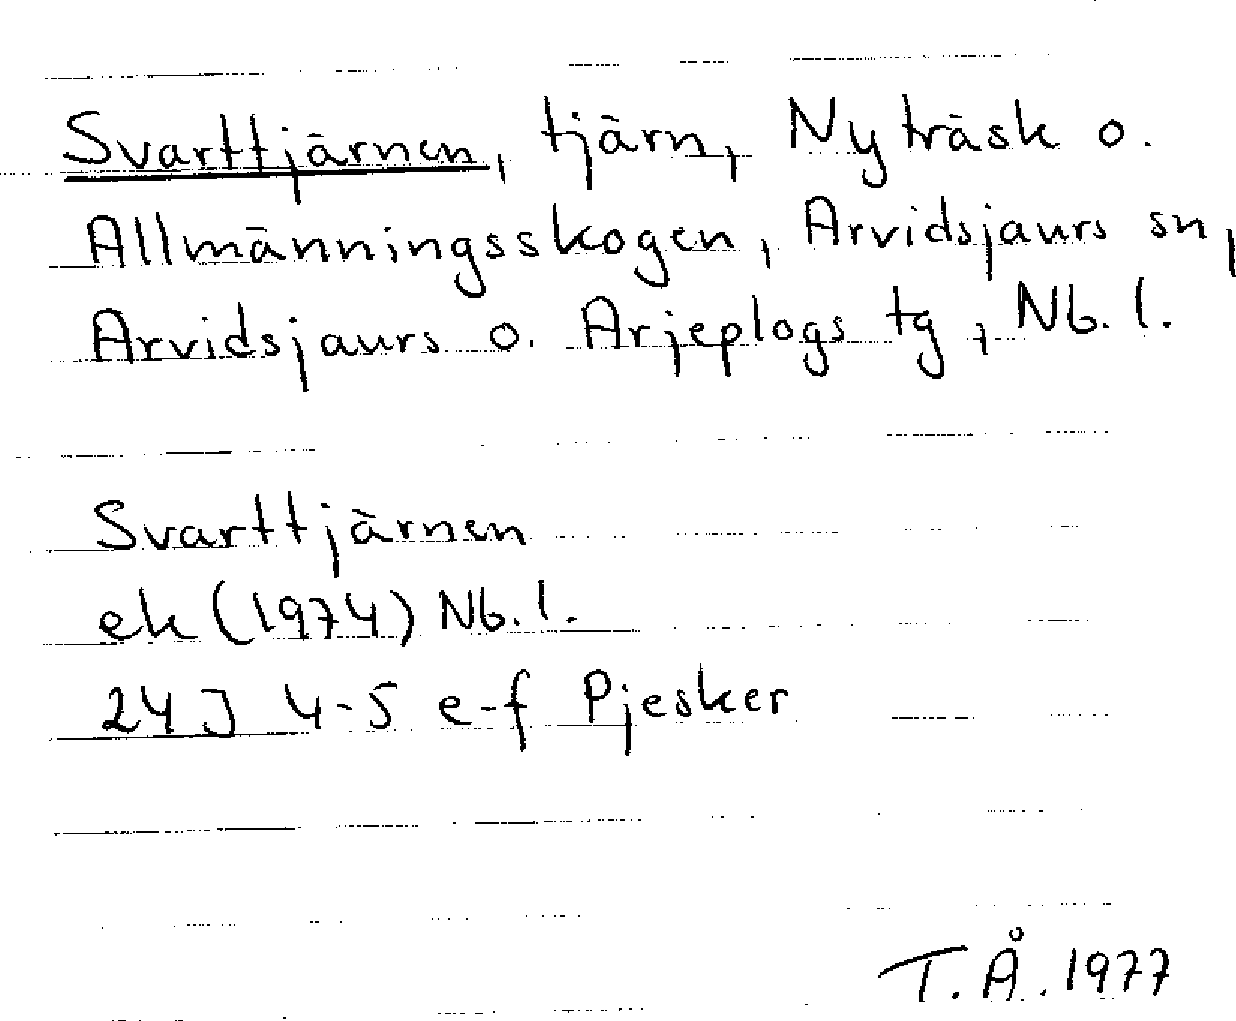 Svarttjärnen, tjärn, Nyträsk o.
Allmänningsskogen, Arvidsjaurs sn,
Arvidsjaurs o. Arjeplogs tg, Nb. l.
Svarttjärnen
ek (1974) Nb. l.
24J 4-5 e-f Pjesker
T.Å. 1977